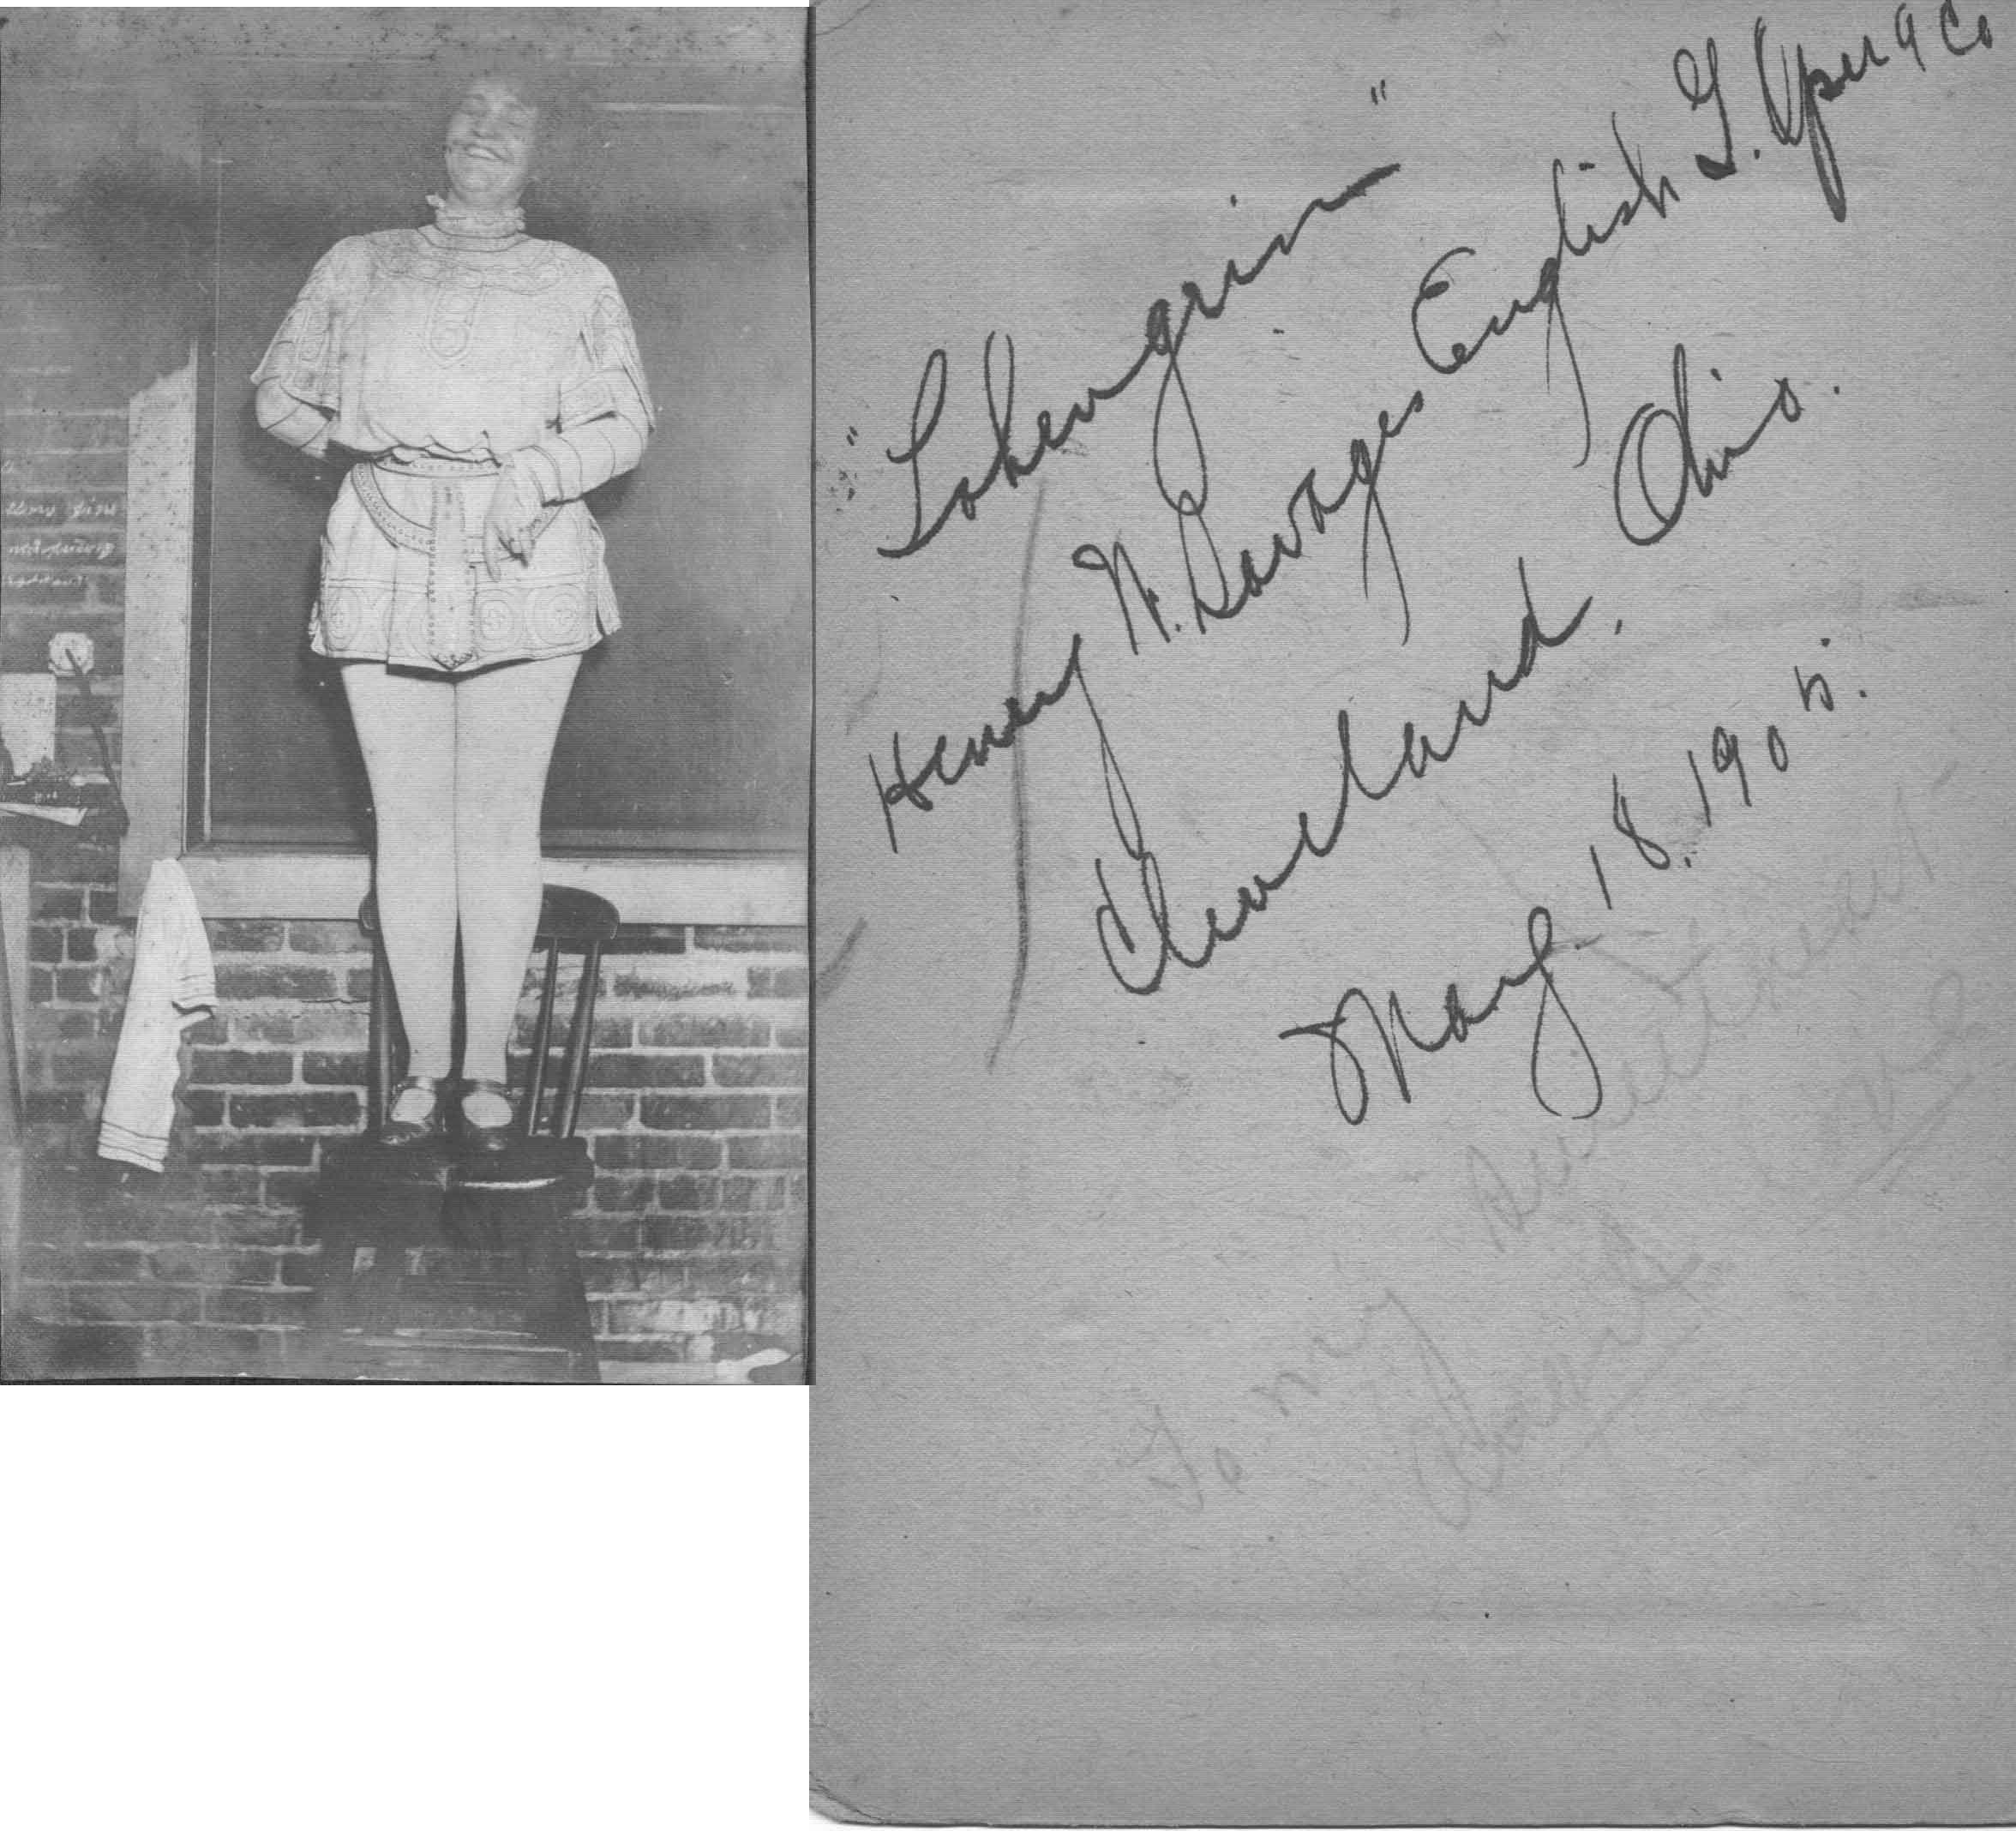 "Lohengrin"
Henry W. Savages English G. Opera Co
Cleveland, Ohio.
May. 18. 1905.
To my Sweetheart
Love